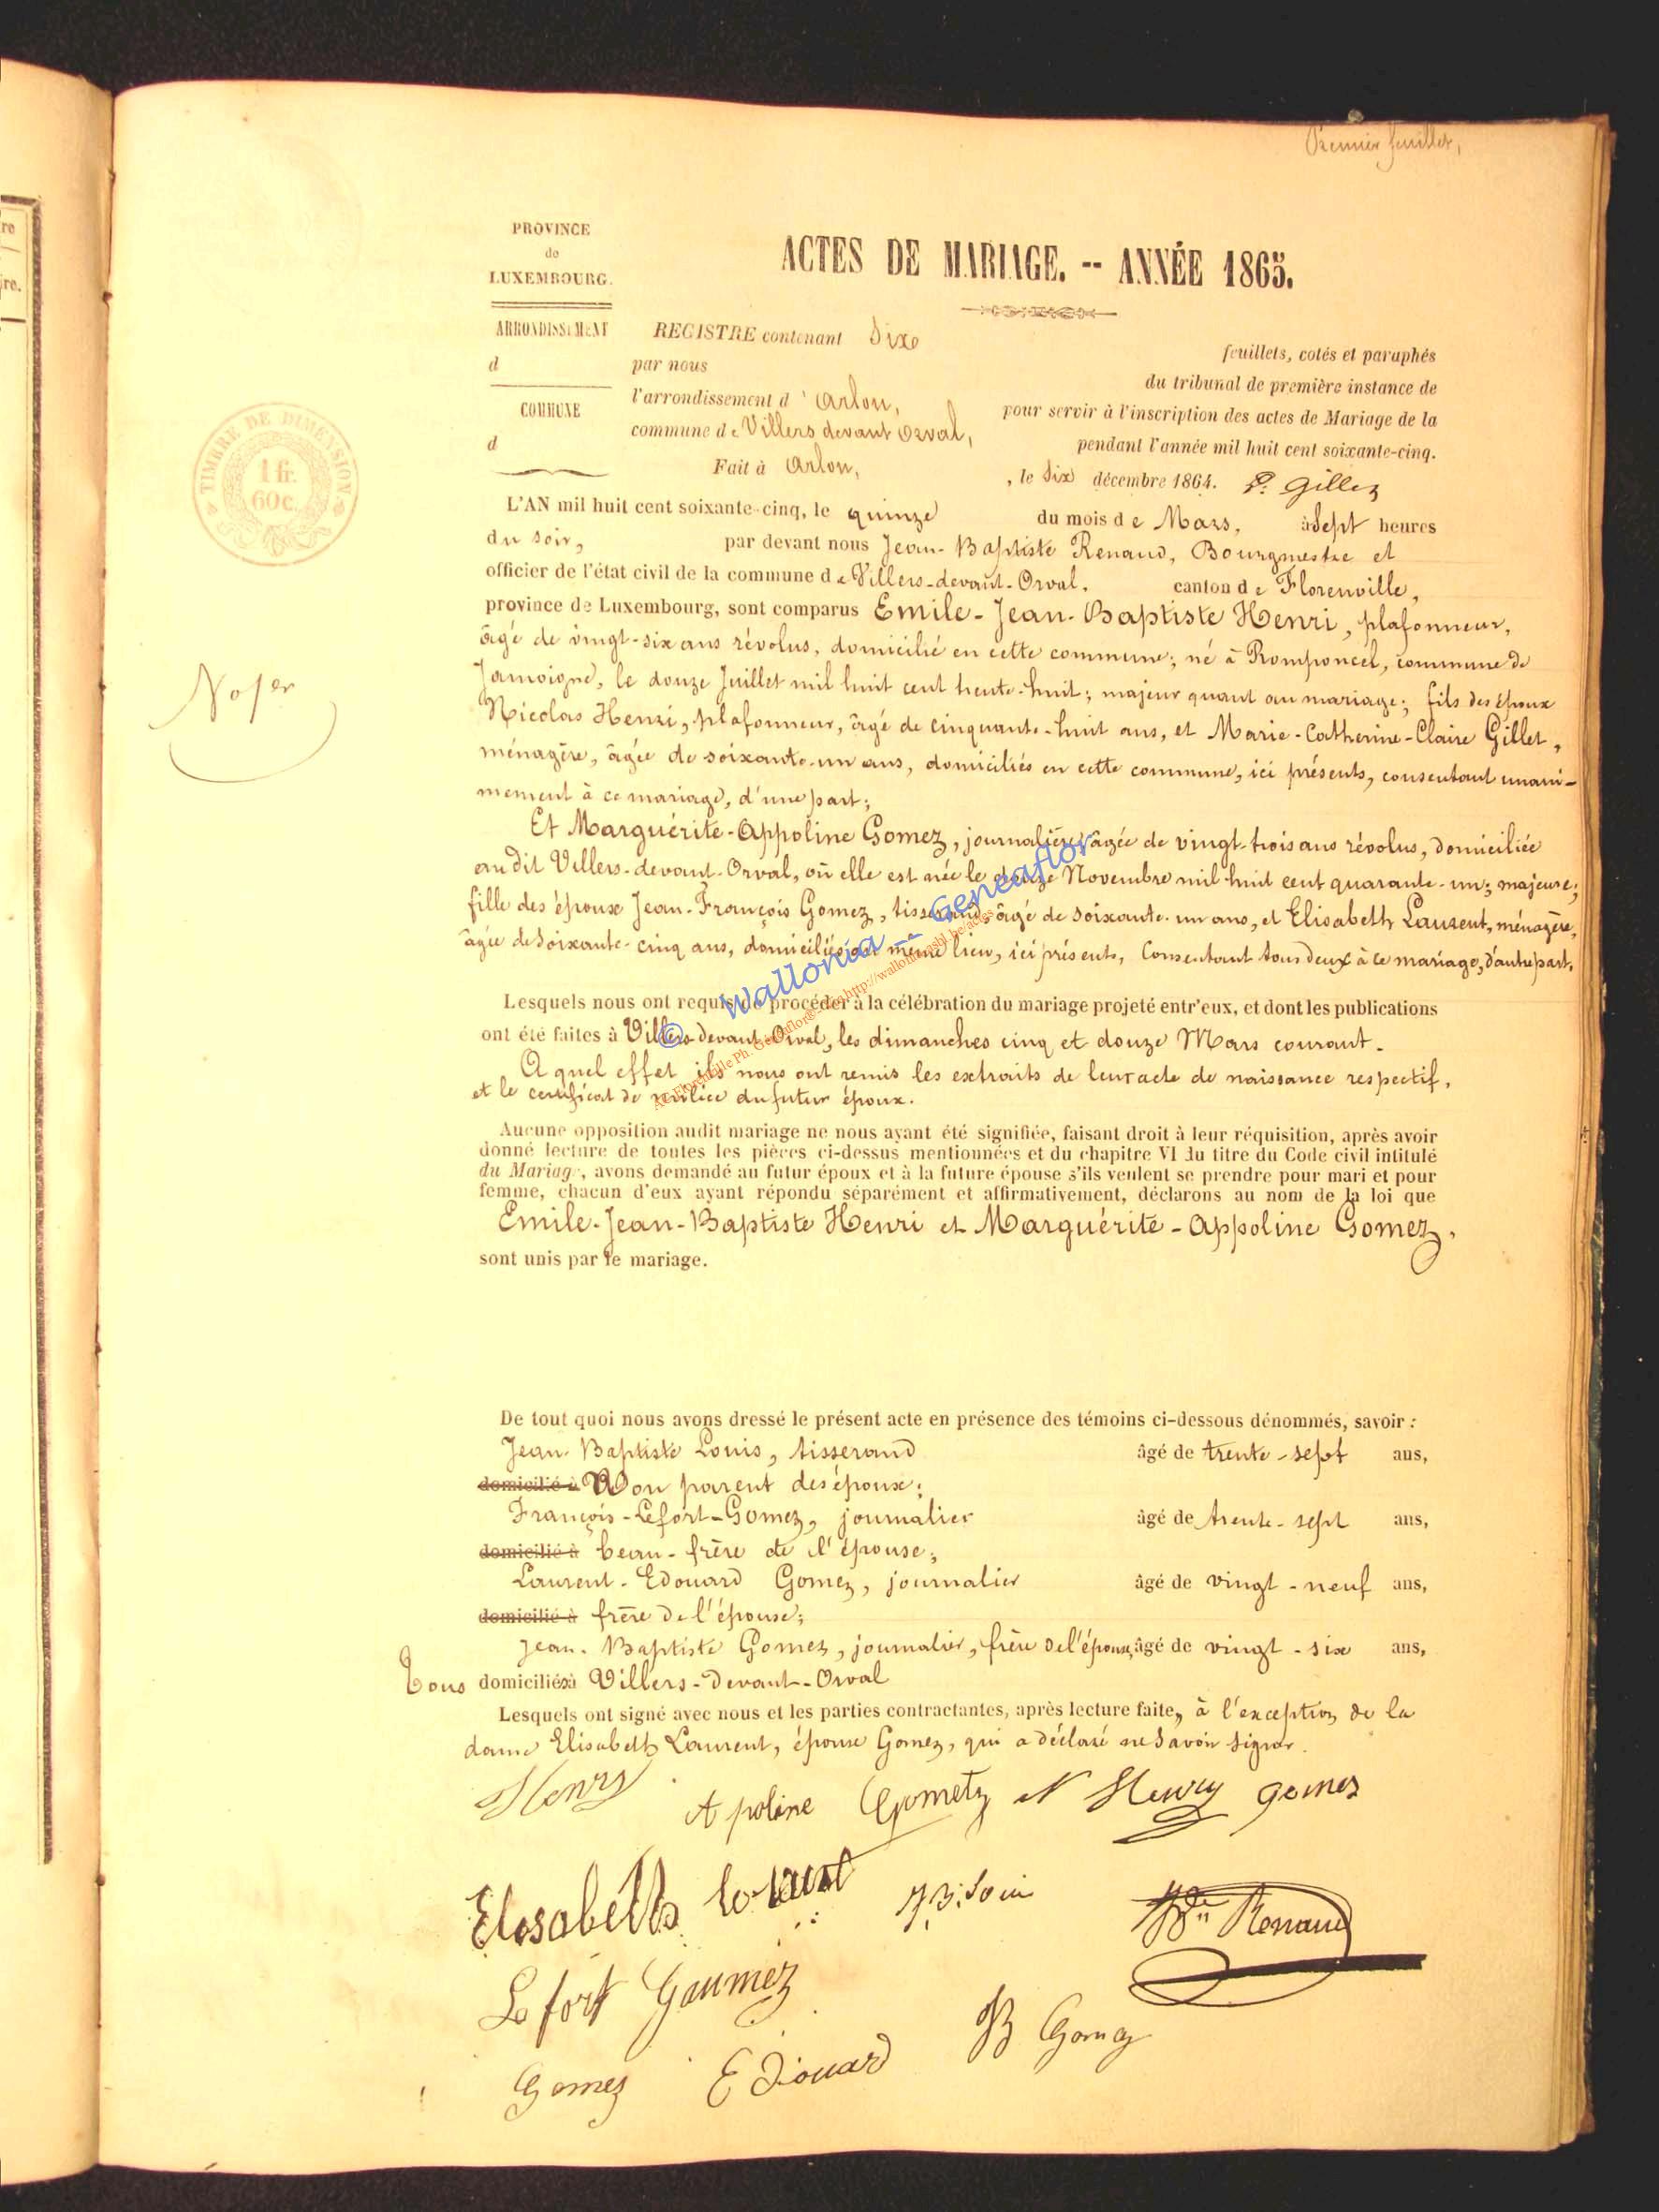 Premier feuillet,
PROVINCE
de
LUXEMBOURG.
ARRONDISSEMENT
d
COMMUNE
d
ACTES DE MARIAGE. -- ANNÉE 1865.
REGISTRE contenant Six feuillets, cotés et paraphés
par nous du tribunal de première instance de
l'arrondissement d'Arlon, pour servir à l'inscription des actes de Mariage de la
commune de Villers devant Orval, pendant l'année mil huit cent soixante-cinq.
Fait à Arlon, , le Six décembre 1864. P. Gilles
TIMBRE DE DIMENSION
1 fr.
60c.
No 1er
L'AN mil huit cent soixante-cinq, le quinze du mois de Mars, à Sept heures
du soir, par devant nous Jean-Baptiste Renaud, Bourgmestre et
officier de l'état civil de la commune de Villers-devant-Orval, canton de Florenville,
province de Luxembourg, sont comparus Emile-Jean-Baptiste Henri, plafonneur,
âgé de vingt-six ans révolus, domicilié en cette commune; né à Romponcel, commune de
Jamoigne, le douze Juillet mil huit cent trente-huit; majeur quant au mariage; fils des époux
Nicolas Henri, plafonneur, âgé de cinquante-huit ans, et Marie-Catherine-Claire Gillet,
ménagère, âgée de soixante-un ans, domiciliés en cette commune, ici présents, consentant unani-
mement à ce mariage, d'une part;
Et Marguérite-Appoline Gomez, journalière, âgée de vingt-trois ans révolus, domiciliée
au dit Villers-devant-Orval, où elle est née le Novembre mil huit cent quarante-un; majeure;
fille des époux Jean-François Gomez, tisserand, âgé de soixante-un ans, et Elisabeth Laurent, ménagère,
âgée de soixante-cinq ans, domiciliés au même lieu, ici présents, Consentant tous deux à ce mariage, d'autre part.
Lesquels nous ont requis de procéder à la célébration du mariage projeté entr'eux, et dont les publications
ont été faites à Villers-devant-Orval, les dimanches cinq et douze Mars courant.
A quel effet ils nous ont remis les extraits de leur acte de naissance respectif,
et le certificat de milice du futur époux.
© Wallonia -- Geneaflor
Aucune opposition audit mariage ne nous ayant été signifiée, faisant droit à leur réquisition, après avoir
donné lecture de toutes les pièces ci-dessus mentionnées et du chapitre VI du titre du Code civil intitulé
du Mariage, avons demandé au futur époux et à la future épouse s'ils veulent se prendre pour mari et pour
femme, chacun d'eux ayant répondu séparément et affirmativement, déclarons au nom de la loi que
Emile-Jean-Baptiste Henri et Marguérite-Appoline Gomez,
sont unis par le mariage.
De tout quoi nous avons dressé le présent acte en présence des témoins ci-dessous dénommés, savoir :
Jean-Baptiste Louis, tisserand âgé de trente-sept ans,
domicilié à Non parent des époux;
François-Lefort-Gomez, journalier âgé de trente-sept ans,
domicilié à beau-frère de l'épouse;
Laurent-Edouard Gomez, journalier âgé de vingt-neuf ans,
domicilié à frère de l'épouse;
Jean-Baptiste Gomez, journalier, frère de l'épouse, âgé de vingt-six ans,
Tous domiciliés à Villers-devant-Orval
Lesquels ont signé avec nous et les parties contractantes, après lecture faite, à l'exception de la
dame Elisabeth Laurent, épouse Gomez, qui a déclaré ne Savoir Signer.
Henry Apoline Gometz N Henry gomes
Elisabeth lorant J.B. Louis Renaud
Lefort Goumez
Gomez Edouard B Gomez